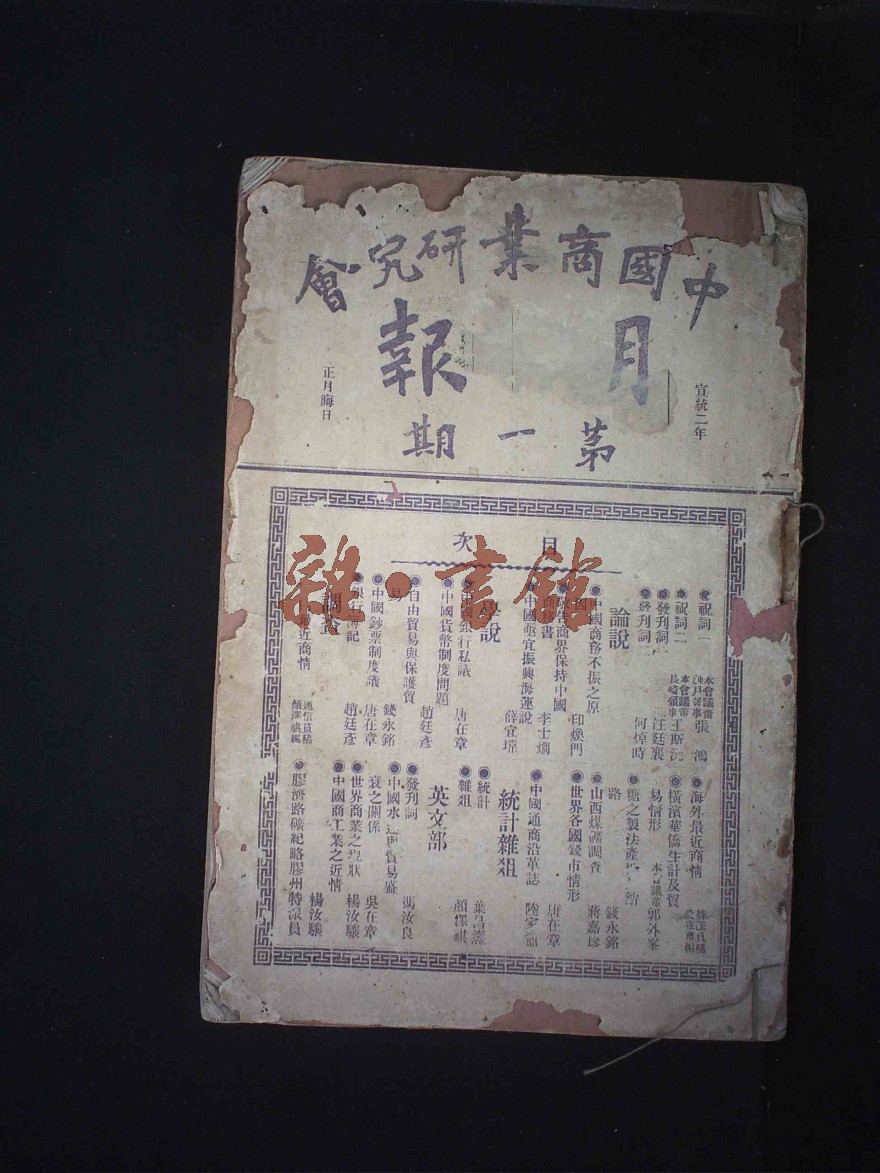 中國商業研究會
月報
宣統二年
正月晦日
第一期
目次
●祝詞一 本會議董神戶領事 張鴻
●祝詞二 本會議董長崎領事 王斯沅
●發刊詞一 汪廷襄
●發刊詞二 何焯時
論說
●中國商務不振之原因 印煥門
敬告商界保持中國商務書 李士熙
●中國亟宜振興海運說 薛宜璫
學說
銀行私議 唐在章
●中國貨幣制度問題 趙廷彥
●自由貿易與保護貿易 錢永銘
●中國鈔票制度議 唐在章
●銀行簿記 趙廷彥
調查
最近商情 通信員稿
●海外最近商情
●橫濱華僑生計及貿易情形 本會議董 郭外峯
●糖之製法產地 銷路 錢永銘
●山西煤礦調查 蔣嘉珍
●世界各國錢市情形 唐在章
●中國通商沿革誌
統計雜俎
●統計 葉昌壽
●雜俎 顏澤祺
英文部
●發刊詞 馮汝良
●中國水運與貿易盛衰之關係 吳在章
●世界商業之現狀 楊汝驤
●中國商工業之近情 楊汝驤
●膠濟路礦紀略 膠州特派員
雜·書館